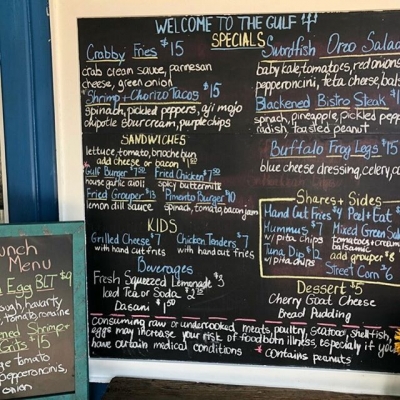 WELCOME TO THE GULF
SPECIALS
Crabby Fries $15
crab cream sauce, parmesan
cheese, green onion
Shrimp + Chorizo Tacos $15
spinach, pickled peppers, aji mojo
chipotle sour cream, purple chips
SANDWICHES
lettuce, tomato, brioche bun
add cheese or bacon
Gulf Burger
house garlic aioli
Fried Chicken
spicy buttermilk
Fried Grouper $13
lemon dill sauce
Pimento Burger $10
spinach, tomato, bacon jam
KIDS
Grilled Cheese $7
with hand cut fries
Chicken Tenders $7
with hand cut fries
Beverages
Fresh Squeezed Lemonade
Iced Tea or Soda
Dasani
consuming raw or undercooked meats, poultry, seafood, shellfish,
eggs may increase your risk of foodborn illness, especially if you
have certain medical conditions * contains peanuts
Swordfish Oreo Salad
baby kale, tomatoes, red onions
pepperoncini, feta cheese, bals
Blackened Bistro Steak
spinach, pineapple, pickled pepp
radish, toasted peanut
Buffalo Frog Legs $15
blue cheese dressing, celery, c
Shares + Sides
Hand Cut Fries $4 Peel + Eat $
Hummus $7
w/ pita chips
Tuna Dip $12
w/ pita chips
Mixed Green Sala
tomatoes + crea
balsamic
add grouper $8
Street Corn
Dessert $5
Cherry Goat Cheese
Bread Pudding
unch
Menu
Egg BLT
ough, havarty
, tomato, romaine
med Shrimp
Grits $15
ge tomato
pepperoncini,
onion